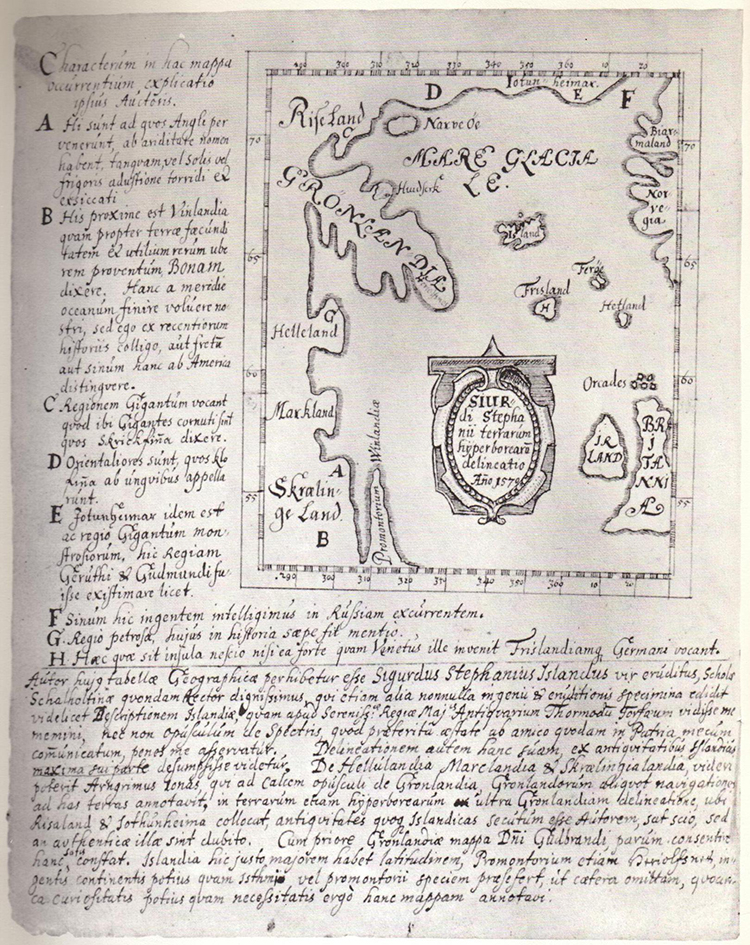 Characterum in hac mappa
occurrentium, explicatio
ipsius Autoris.
A Hi sunt ad quos Angli per
venerunt, ab ariditate nomen
habent, tanquam vel Solis vel
frigoris adustione torridi et
exsiccati
B His proxime est Vinlandia
quam propter terræ fæcundi
tatem et utilium rerum ube
rem proventum, Bonam
dixere. Hanc a meridie
oceanum finire voluere no
stri, sed ego ex recentiorum
historiis colligo, aut fretū
aut sinum hanc ab America
distinguere.
C Regionem Gigantum vocant
quod ibi Gigantes cornuti sint
quos Skrickfinna dixere.
D Orientaliores sunt, quos klo
fiña ab unguibus appella
runt.
E Jotunheimar idem est
ac regio Gigantum mon
strosiorum, hic Regiam
Geruthi & Gudmundi fu
isse existimare licet.
290 300 310 320 330 340 350 360 10 20
D Iotun heimar E F
Riseland
C
Narve Oe
70
Biarmaland
70
MARE GLACIALE.
GRÖNLANDIA
Huidserk
Norvegia
Island
65
65
Feröe
Frisland
H
Hetland
G
Helleland
60
Orcades
60
SIUR
di Stepha
nii terrarum
hyperborearū
delineatio
Año 1570
Markland
BRITANNIA
IRLAND
A
Skrælinge Land
B
Promontorium Winlandiæ
55
55
290 300 310 320 340 350 360 10 20
F Sinum hic ingentem intelligimus in Russiam excurrentem.
G. Regio petrosa, hujus in historia sæpe fit mentio.
H Hæc quæ sit insula nescio nisi ea forte quam Venetus ille invenit Frislandiamq Germani vocant.
Autor hujq tabellæ Geographicæ perhibetur esse Sigurdus Stephanius Islandus vir eruditus, Scholæ
Schalholtinæ quondam Rector dignissimus, qui etiam alia nonnulla ingenii & eruditionis specimina edidit
videlicet Descriptionem Islandiæ, quam apud Sereniss. Regiæ Maj. Antiquarium Thormodū Torfæum vidisse me
memini, nec non opusculum de Spectris, quod præterita æstate ab amico quodam in Patria mecum
com̄unicatum, penes me asservatur. Delineationem autem hanc suam, ex antiquitatibus Islandicis
maxima sui parte desumpsisse videtur. De Hellulandia Marclandia & Skrælingialandia, videri
poterit Arngrimus Ionas, qui ad calcem opusculi de Gronlandia, Gronlandorum aliquot navigationes
ad has terras annotavit, in terrarum etiam hyperborearum ultra Gronlandiam delineatione, ubi
Risaland & Jothunheima collocat, antiquitates quoq Islandicas secutum esse Autorem, sat scio, sed
an authenticæ illæ sint dubito. Cum priore Gronlandiæ mappa Dñi Gudbrandi parum consentire
hanc, constat. Islandia hic justo majorem habet latitudinem, Promontorium etiam Heriolfsnes, in
gentis continentis potius quam Isthmi vel promontorii speciem præsefert, ut cætera omittam, quocirca
curiositatis potius quam necessitatis ergò hanc mappam annotavi.